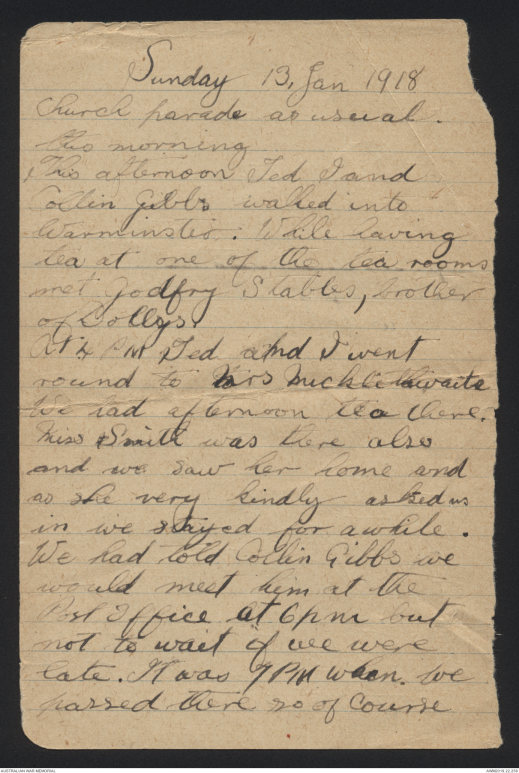 Sunday 13, Jan 1918
Church parade as usual.
this morning
This afternoon Ted I and
Collin Gibbs walked into
Warminster. While having
tea at one of the tea rooms
met Godfry Stables, brother
of Dollys.
At 4 PM Ted and I went
round to Mrs Micklethwaite
We had afternoon tea there.
Miss Smith was there also
and we saw her home and
as she very kindly asked us
in we stayed for awhile.
We had told Collin Gibbs we
would meet him at the
Post Office at 6 pm but
not to wait if we were
late. It was 7 PM when we
passed there so of course
AUSTRALIAN WAR MEMORIAL